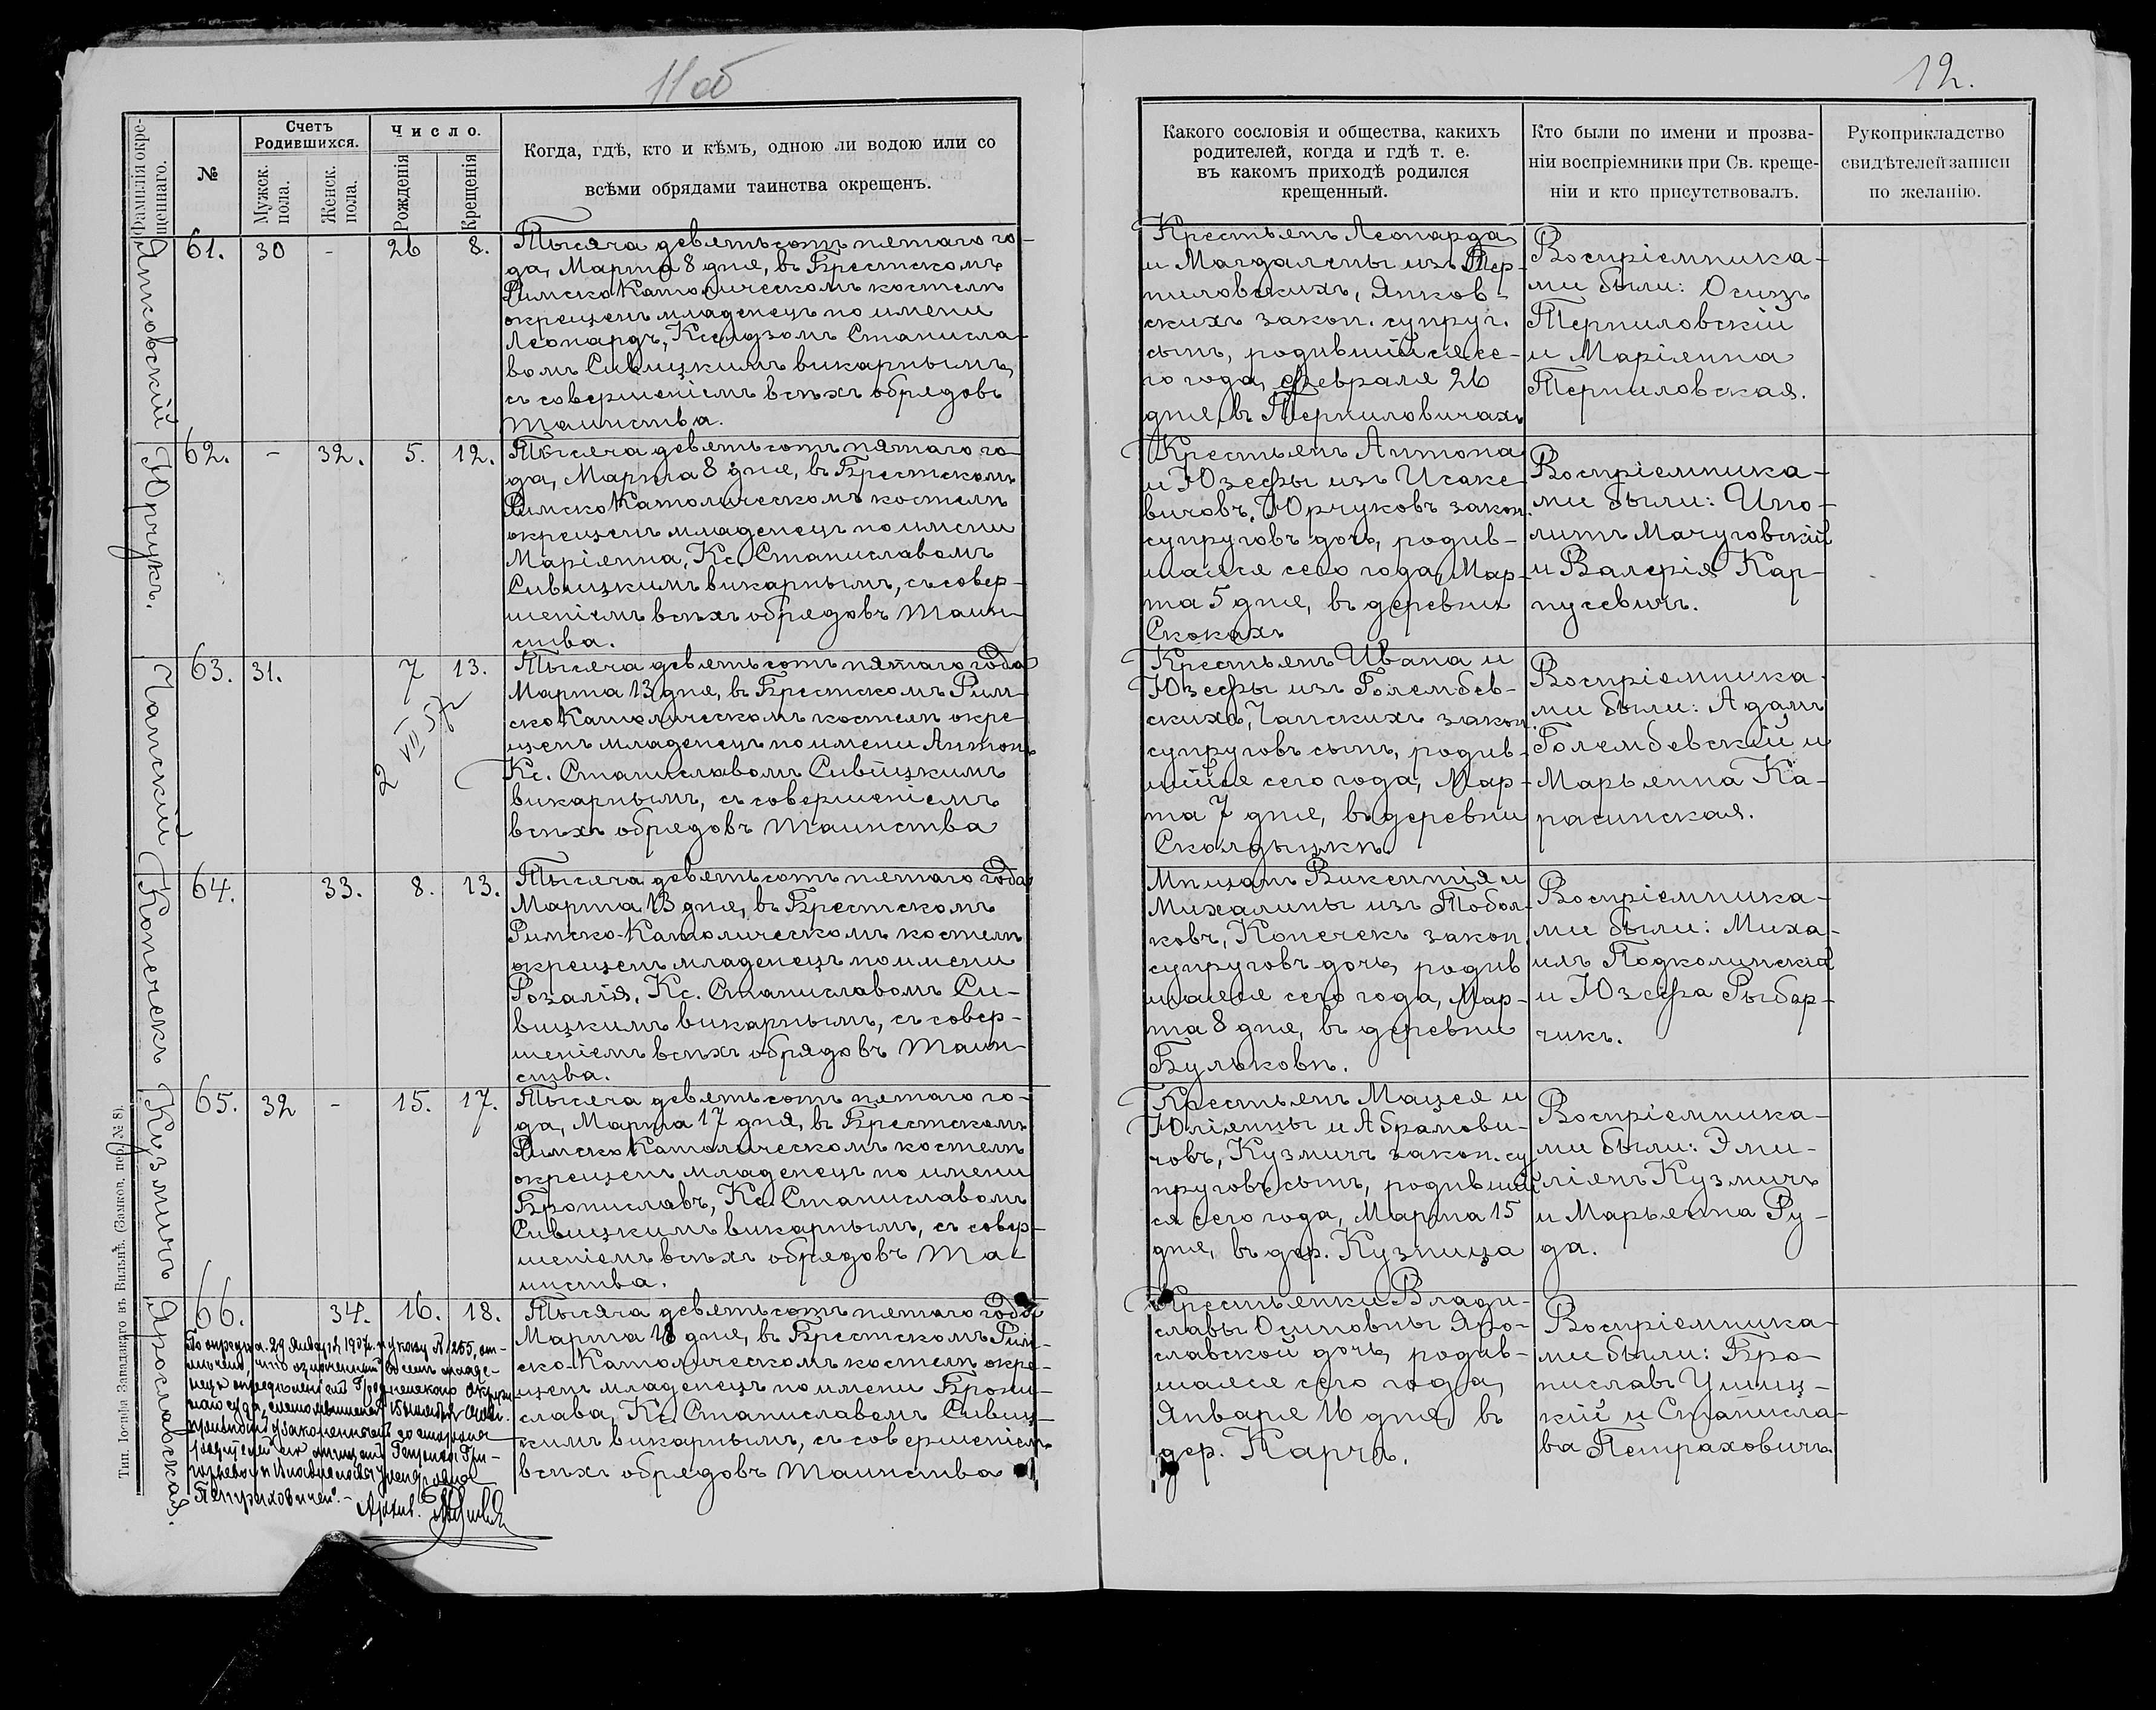 11об
Фамилія окрещеннаго.
№
Счетъ Родившихся.
Мужск. пола.
Женск. пола.
Число.
Рожденія
Крещенія
Когда, гдѣ, кто и кѣмъ, одною ли водою или со
всѣми обрядами таинства окрещенъ.
Янковскій
61. 30 - 26 8.
Тысяча девятьсотъ пятаго го-
да, Марта 8 дня, въ Брестскомъ
Римско Католическомъ костелѣ
окрещенъ младенецъ по имени
Леонардъ, Ксендзомъ Станисла-
вомъ Сивицкимъ викарнымъ,
съ совершеніемъ всѣхъ обрядовъ
Таинства.
Юрчукъ.
62. - 32. 5. 12.
Тысяча девятьсотъ пятаго го-
да, Марта 8 дня, въ Брестскомъ
Римско Католическомъ костелѣ
окрещенъ младенецъ по имени
Маріянна, Кс. Станиславомъ
Сивицкимъ викарнымъ, съ совер-
шеніемъ всѣхъ обрядовъ Таин-
ства.
Чапскій
63. 31. 7 13.
2 VII 57
Тысяча девятьсотъ пятаго года
Марта 13 дня, въ Брестскомъ Рим-
ско Католическомъ костелѣ окре-
щенъ младенецъ по имени Антонъ
Кс. Станиславомъ Сивицкимъ
викарнымъ, съ совершеніемъ
всѣхъ обрядовъ Таинства
Копечекъ
64. 33. 8. 13.
Тысяча девятьсотъ пятаго года
Марта 13 дня, въ Брестскомъ
Римско-Католическомъ костелѣ
окрещенъ младенецъ по имени
Розалія, Кс. Станиславомъ Си-
вицкимъ викарнымъ, съ совер-
шеніемъ всѣхъ обрядовъ Таин-
ства.
Кузмичъ
65. 32 - 15. 17.
Тысяча девятьсотъ пятаго го-
да, Марта 17 дня, въ Брестскомъ
Римско Католическомъ костелѣ
окрещенъ младенецъ по имени
Брониславъ, Кс. Станиславомъ
Сивицкимъ викарнымъ, съ совер-
шеніемъ всѣхъ обрядовъ Та-
инства.
Ярославская.
66. 34. 16. 18.
Тысяча девятьсотъ пятаго года
Марта 18 дня, въ Брестскомъ Рим-
ско-Католическомъ костелѣ окре-
щенъ младенецъ по имени Брони-
слава, Кс. Станиславомъ Сивиц-
кимъ викарнымъ, съ совершеніемъ
всѣхъ обрядовъ Таинства
1907 г. указу № 1255, от-
мѣчено, что означенный въ семъ младе-
нецъ опредѣленіемъ Гродненскаго Окруж-
наго суда,
Петраховичей".-
Архив.
Тип. Іосифа Завадзкаго въ Вильнѣ. (Замков. пер. № 8).
12.
Какого сословія и общества, какихъ
родителей, когда и гдѣ т. е.
въ какомъ приходѣ родился
крещенный.
Кто были по имени и прозва-
ніи воспріемники при Св. креще-
ніи и кто присутствовалъ.
Рукоприкладство
свидѣтелей записи
по желанію.
Крестьянъ Леонарда
и Магдалены изъ Тер-
пиловскихъ, Янков-
скихъ закон. супруг.
сынъ, родившійся се-
го года, Февраля 26
дня, въ Терпиловичахъ
Воспріемника-
ми были: Осипъ
Терпиловскій
и Маріянна
Терпиловская.
Крестьянъ Антона
и Юзефы изъ Исаке-
вичовъ, Юрчуковъ закон.
супруговъ дочь, родив-
шаяся сего года, Мар-
та 5 дня, въ деревни
Скокахъ
Воспріемника-
ми были: Ипо-
литъ Мачуговскій
и Валерія Кар-
пусевичъ.
Крестьянъ Ивана и
Юзефы изъ Голембев-
скихъ, Чапскихъ закон.
супруговъ сынъ, родив-
шійся сего года, Мар-
та 7 дня, въ деревни
Сколдычкѣ.
Воспріемника-
ми были: Адамъ
Голембевскій и
Марьянна Ка-
расинская.
Мѣщанъ Викентія и
Михалины изъ Тобол-
ковъ, Копечекъ закон.
супруговъ дочь, родив
шаяся сего года, Мар-
та 8 дня, въ деревни
Бульковѣ.
Воспріемника-
ми были: Миха-
илъ Подколинскій
и Юзефа Рыбар-
чикъ.
Крестьянъ Мацея и
Юліянны и Абрамови-
човъ, Кузмичъ закон. су
пруговъ сынъ, родивший
ся сего года, Марта 15
дня, въ дер. Кузница
Воспріемника-
ми были: Эми-
ліянъ Кузмичъ
и Марьянна Ру-
да.
Крестьянки Влади-
славы Осиповны Яро-
славской дочь, родив-
шаяся сего года,
Января 16 дня, въ
дер. Карчъ.
Воспріемника-
ми были: Бро-
ниславъ
кій и Станисла-
ва Петраховичъ.